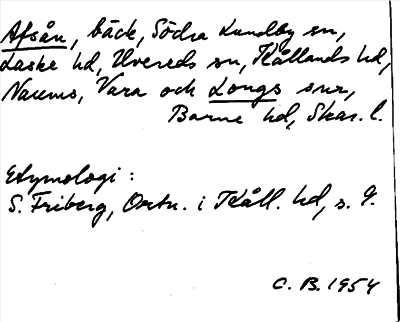 Afsån, bäck, Södra Lundby sn,
Laske hd, Uvereds sn, Kållands hd,
Naums, Vara och Longs snr,
Barne hd, Skar. l.
Etymologi:
S. Friberg, Ortn. i Kåll. hd, s. 9.
C. B. 1954